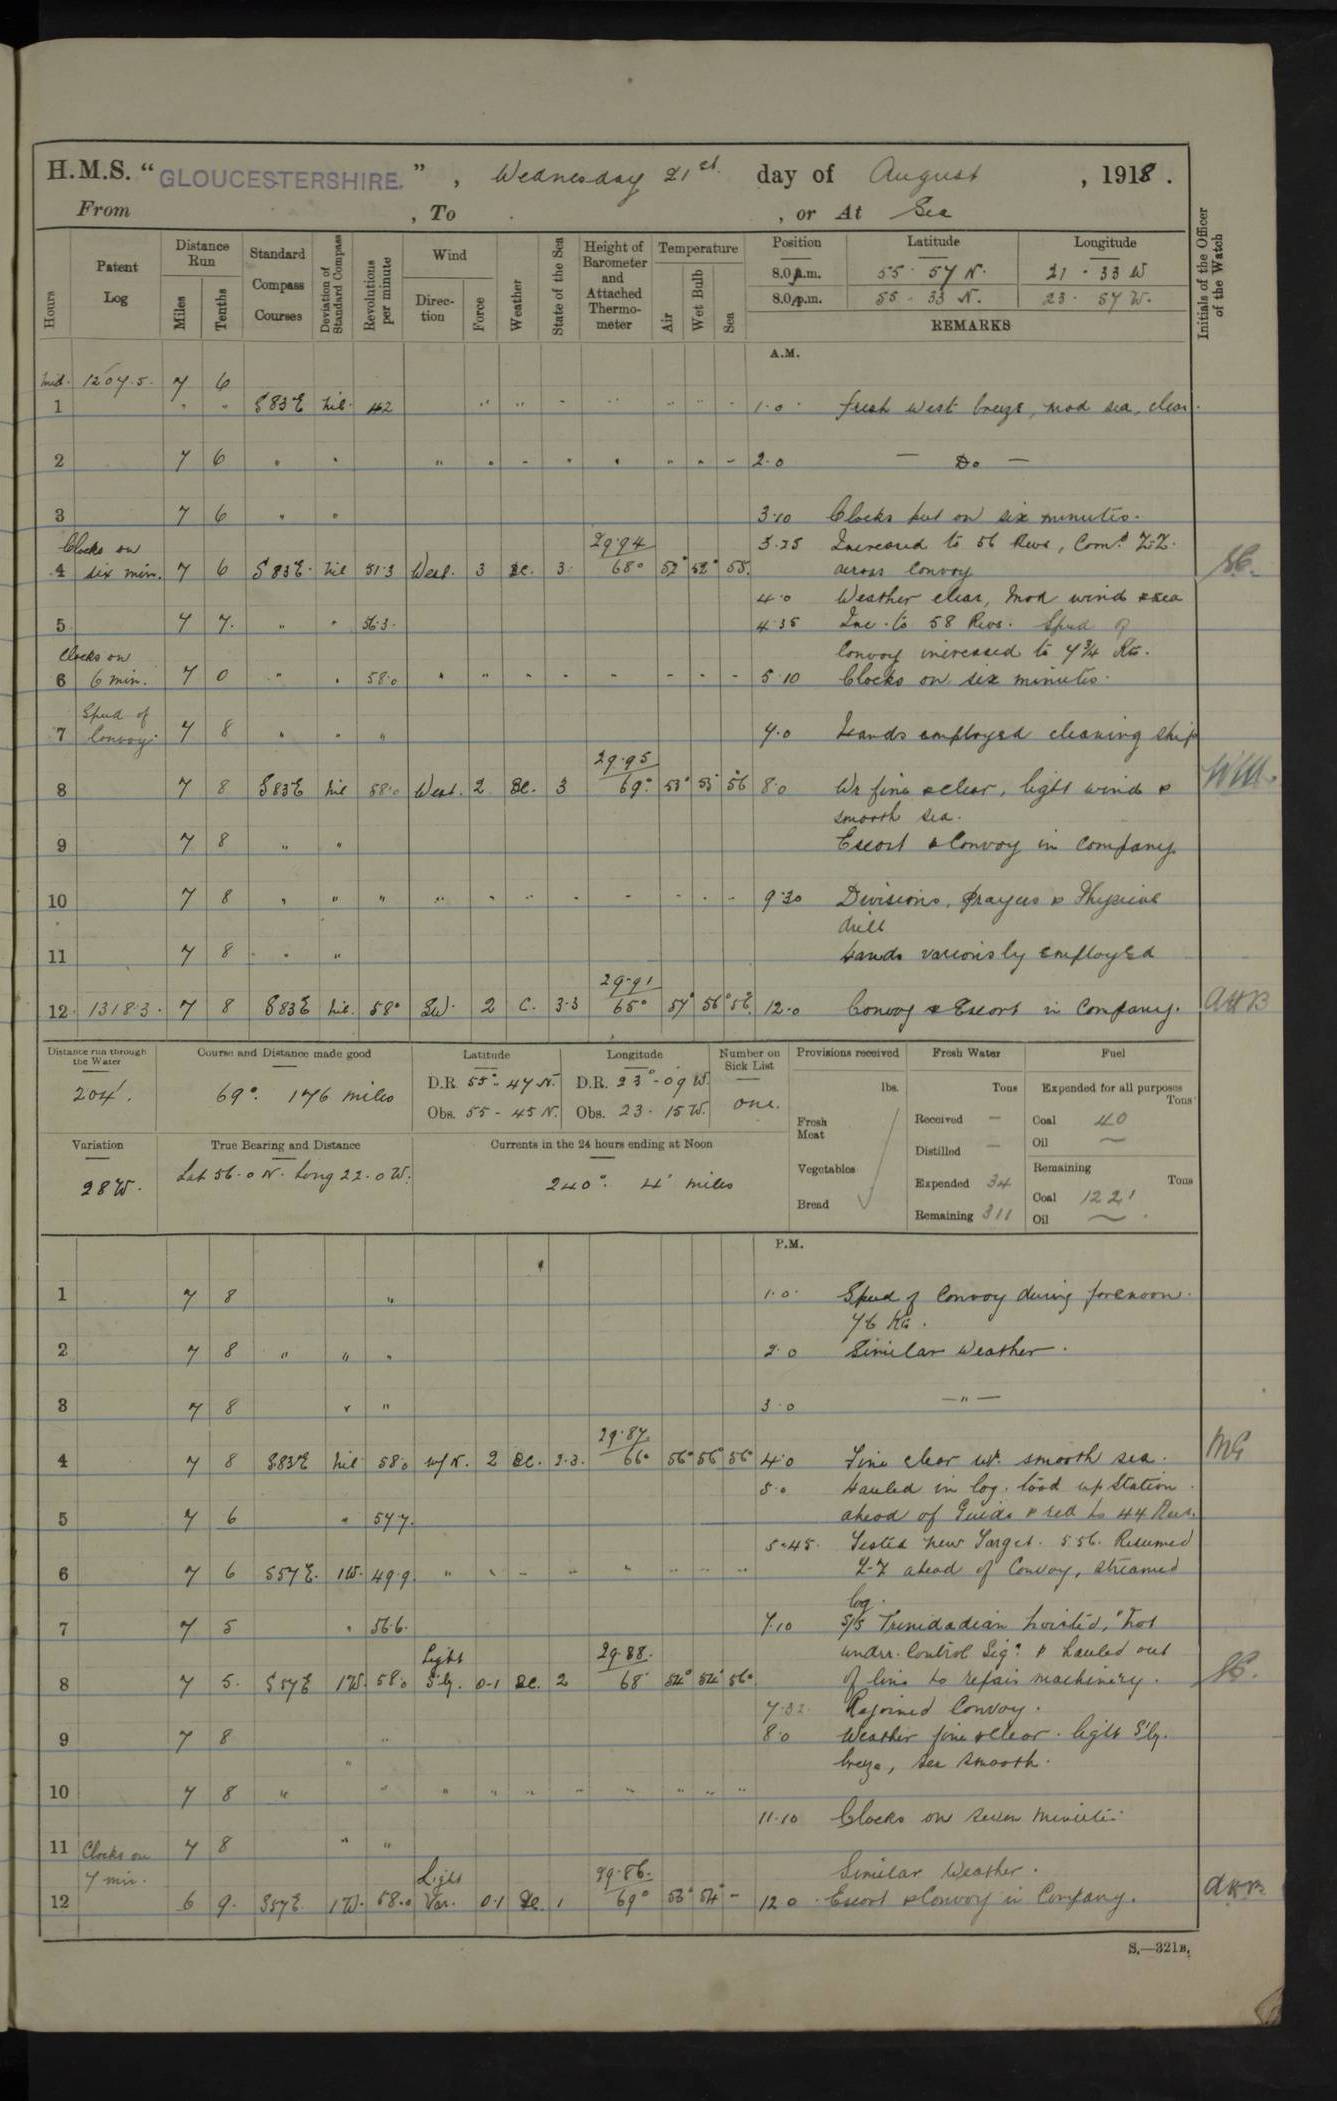 H.M.S. "GLOUCESTERSHIRE.", Wednesday 21st day of August, 1918.
From , To , or At Sea
Hours
Patent Log
Distance Run
Miles
Tenths
Standard Compass Courses
Deviation of Standard Compass
Revolutions per minute
Wind
Direction
Force
Weather
State of the Sea
Height of Barometer and Attached Thermometer
Temperature
Air
Wet Bulb
Sea
Position Latitude Longitude
8.0 a.m. 55 . 57 N. 21 . 33 W
8.0 p.m. 55 . 33 N. 23 . 57 W.
REMARKS
Initials of the Officer of the Watch
A.M.
mid. 1207.5. 7 6
1 " " S 83 E Nil. 42 " " - " " " - 1.0 fresh West breeze, mod sea, clear.
2 7 6 " " " " - " " " " - 2.0 — Do —
3 7 6 " " 3.10 Clocks put on six minutes.
Clocks on 29.94 3.25 Increased to 56 Revs, Comd. Z.Z.
4 six min. 7 6 S 83 E. Nil 51.3 West. 3 BC. 3. 68° 52° 52° 55. across Convoy
4.0 Weather clear, Mod wind & sea
5 7 7. " " 56.3. 4.35 Inc. to 58 Revs. Speed of
Clocks on Convoy increased to 7¾ Kts.
6 6 min. 7 0 " " 58.0 " " - " - - - - - 5.10 Clocks on six minutes.
Speed of
7 Convoy. 7 8 " " " 7.0 Hands employed cleaning ship
29.95
8 7 8 S 83 E Nil 58.0 West. 2 BC. 3 69° 53° 53° 56° 8.0 Wr fine & clear, light wind &
smooth sea.
9 7 8 " " Escort & Convoy in Company.
10 7 8 " " " " " " - - - - - - 9.30 Divisions, Prayers & Physical
drill
11 7 8 " " Hands variously employed
29.91
12 1318.3. 7 8 S 83 E Nil. 58.0 SW. 2 C. 3.3 65° 57° 56° 56. 12.0 Convoy & Escort in Company.
Distance run through the Water
204'.
Course and Distance made good
69°. 176 miles
Latitude
D.R. 55° - 47 N.
Obs. 55 - 45 N.
Longitude
D.R. 23° - 09 W.
Obs. 23 . 15 W.
Number on Sick List
one.
Variation
28 W.
True Bearing and Distance
Lat 56.0 N. Long 22.0 W.
Currents in the 24 hours ending at Noon
240°. 4' miles
Provisions received
lbs.
Fresh Meat
Vegetables
Bread
Fresh Water
Tons
Received —
Distilled —
Expended 34
Remaining 311
Fuel
Expended for all purposes
Tons
Coal 40
Oil —
Remaining
Tons
Coal 1221
Oil —
P.M.
1 7 8 " 1.0. Speed of Convoy during forenoon.
7.6 Kts.
2 7 8 " " " 2.0 Similar Weather.
3 7 8 " " 3.0 — " —
29.87.
4 7 8 S83E Nil 58.0 W/N. 2 BC. 2.3. 66° 56° 56° 56° 4.0 Fine clear wr. smooth sea. MG
5.0 Hauled in log. took up Station
5 7 6 " 57.7. ahead of Guide & red to 44 Revs.
5.45. Tested new Target. 5.56. Resumed
6 7 6 S57E. 1W. 49.9. " " - " " " " " Z-Z ahead of Convoy, streamed
log.
7 7 5 " 56.6. 7.10 S/S Trinidadian hoisted, "Not
Light 29.88. under Control Sig. & hauled out
8 7 5. S 57 E 1W. 58.0 S'ly. 0-1 BC. 2 68 54° 54° 56° of line to repair machinery.
7.32. Rejoined Convoy.
9 7 8 " 8.0 Weather fine & clear. light S'ly.
" breeze, sea smooth.
10 7 8 " " " " " " " " " "
11.10 Clocks on seven minutes.
11 Clocks on 7 8 " "
7 min. Light 29.86. Similar Weather.
12 6 9. S57E. 1W. 58.0 Var. 0.1 BC. 1 69° 53° 54° - 12.0 Escort & Convoy in Company.
S.—321B.